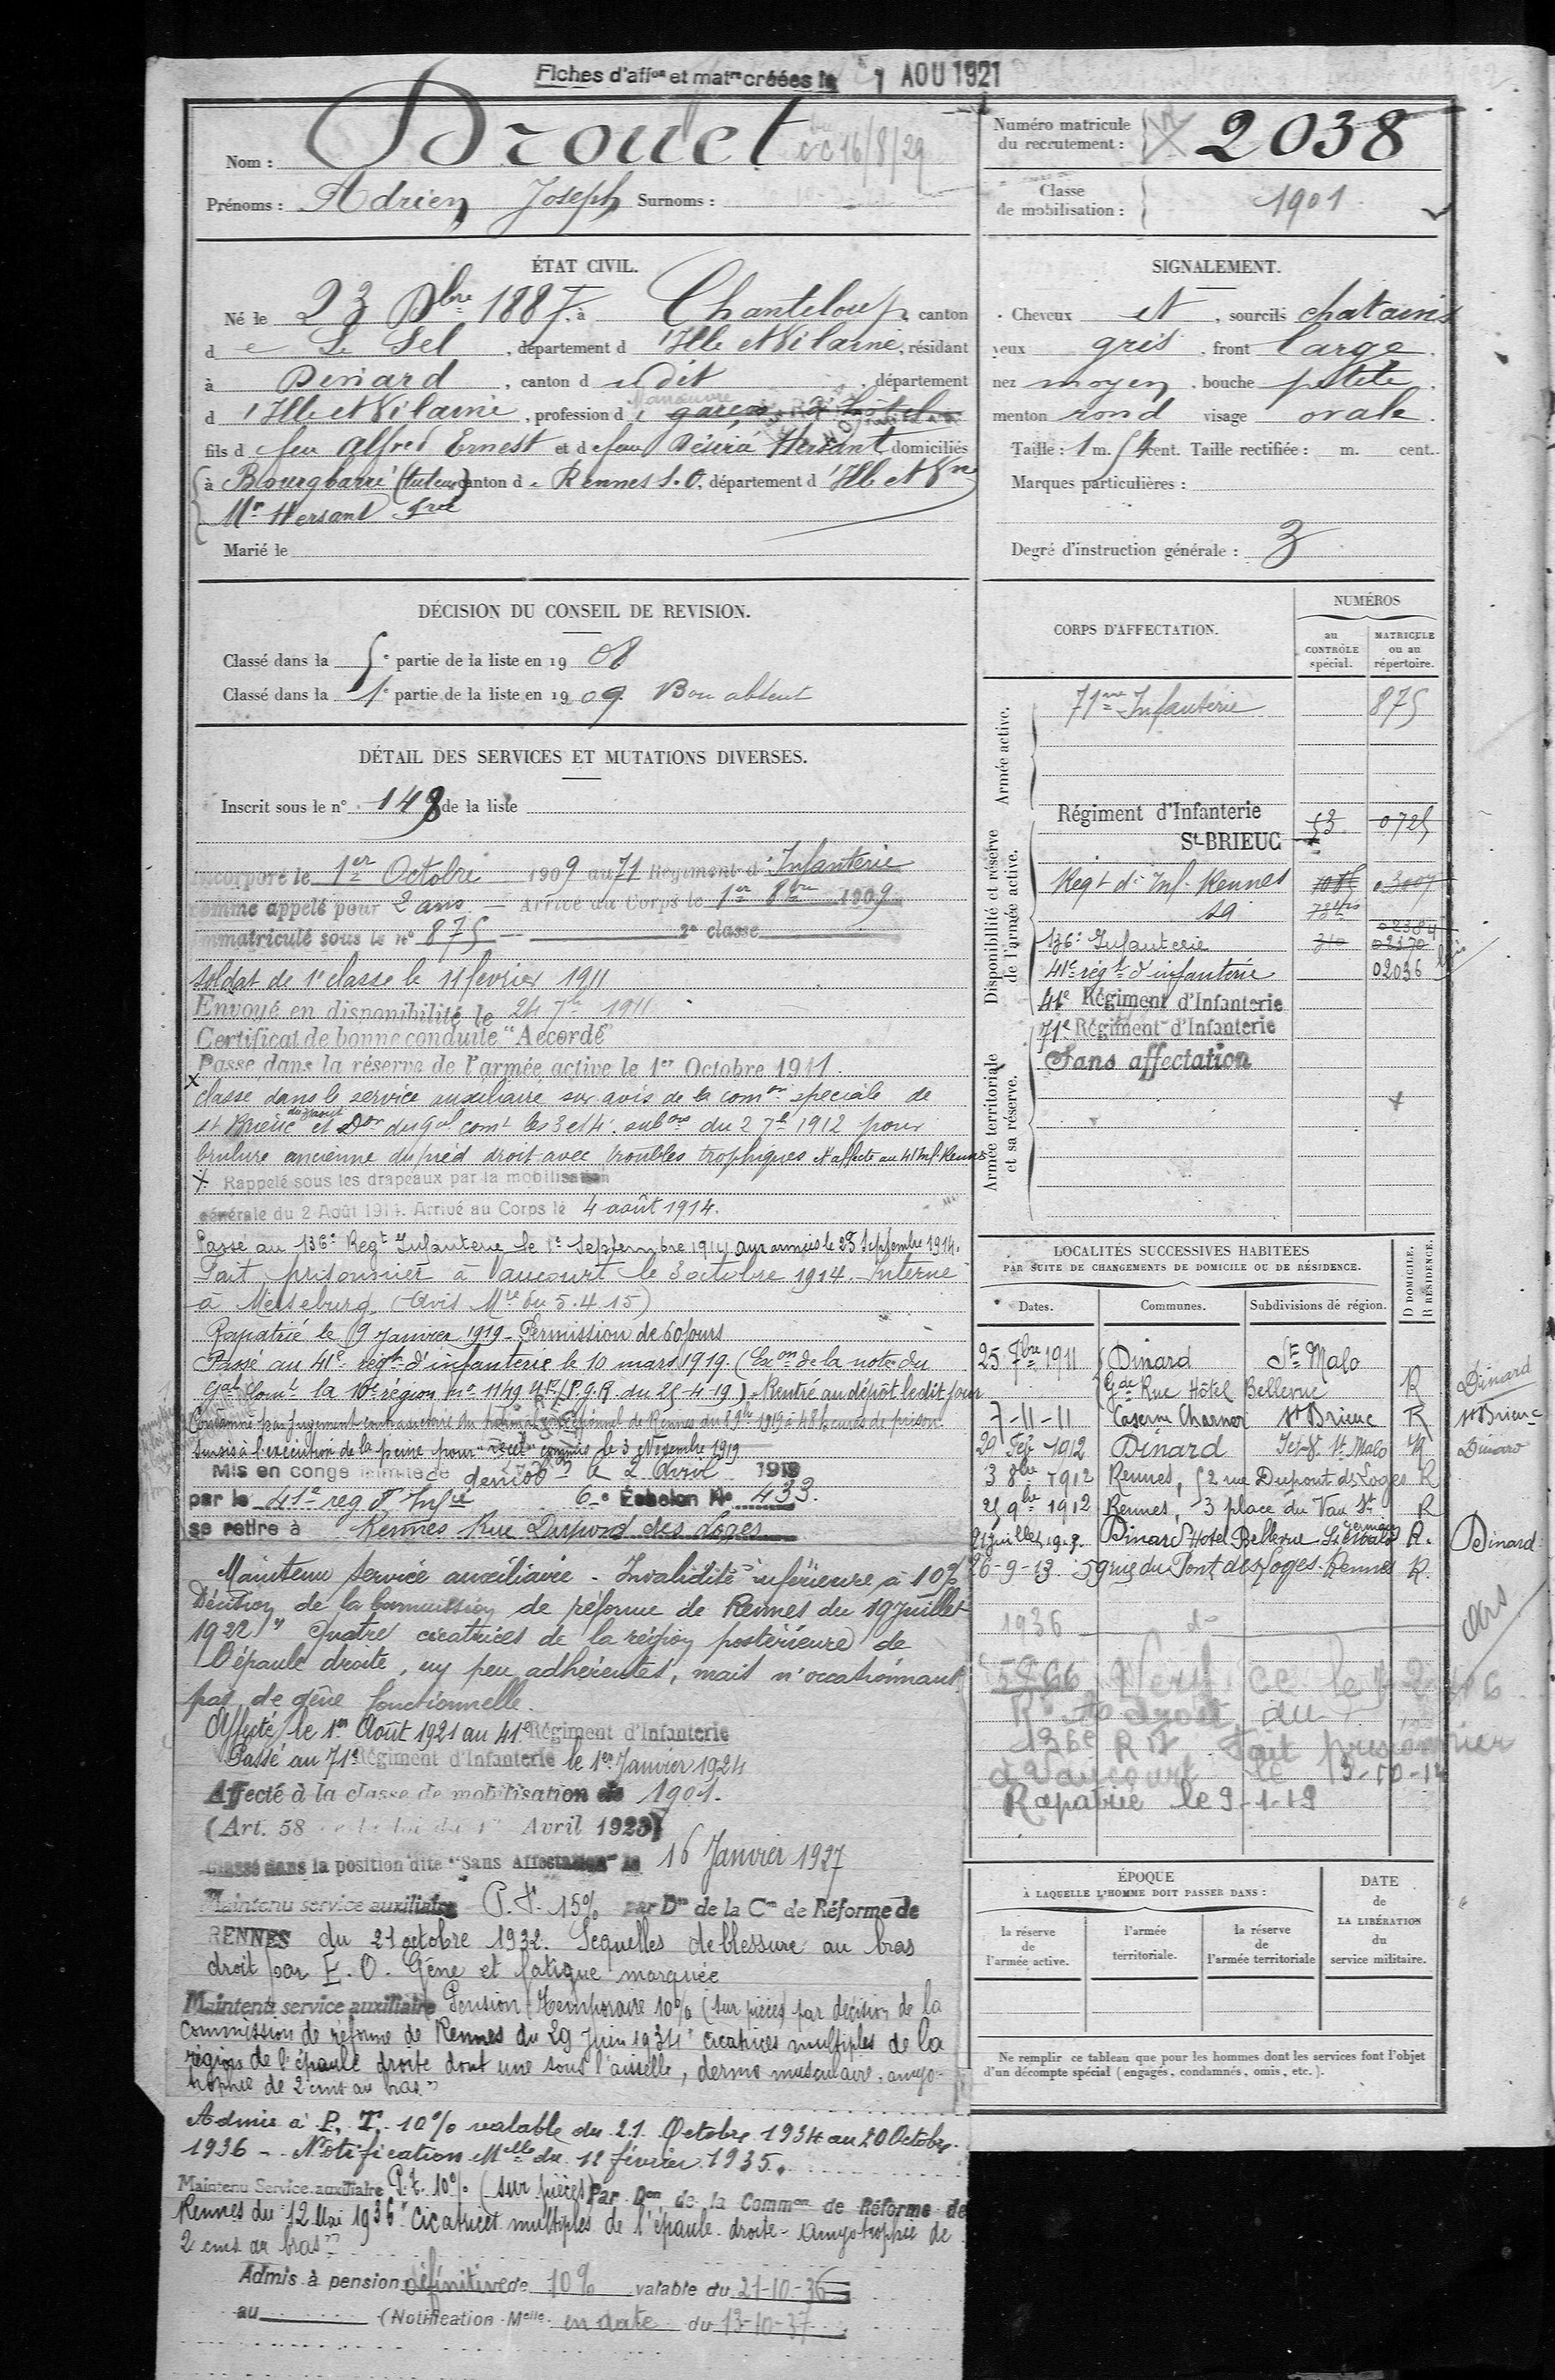 Fiches d'affon et matre créées le 1 AOU 1921
Nom : Drouet
CC 16/8/29
Prénoms : Adrien Joseph Surnoms :
Numéro matricule du recrutement : 2038
Classe de mobilisation : 1901
ÉTAT CIVIL.
Né le 23 Xbre 1887, à Chanteloup, canton
de Le Sel, département d'Ille et Vilaine, résidant
à Dinard, canton du dit, département
d'Ille et Vilaine, profession de garçon d'hôtel
Manœuvre
fils de feu Alfred Ernest et de feu Désirée Hersant domiciliés
à Bourgbarré (tuteur) canton de Rennes S.O, département d'Ille et Vne
Mr Hersant
Marié le
SIGNALEMENT.
Cheveux et, sourcils chatains
yeux gris, front large.
nez moyen, bouche petite.
menton rond visage ovale.
Taille : 1 m. 54 cent. Taille rectifiée : m. cent.
Marques particulières :
Degré d'instruction générale : 3
DÉCISION DU CONSEIL DE REVISION.
Classé dans la 5e partie de la liste en 1908
Classé dans la 1e partie de la liste en 1909 Bon absent
DÉTAIL DES SERVICES ET MUTATIONS DIVERSES.
Inscrit sous le n° 148 de la liste
Incorporé le 1er Octobre 1909 au 71 Régiment d'Infanterie
comme appelé pour 2 ans — Arrivé au Corps le 1er 8bre 1909
immatriculé sous le n° 875 — 2e classe
soldat de 1e classe le 11 fevrier 1911
Envoyé en disponibilité le 24 7bre 1911
Certificat de bonne conduite "Accordé"
Passé dans la réserve de l'armée active le 1er Octobre 1911.
classé dans le service auxiliaire sur avis de la comon speciale de
St Brieuc et Don du Gal comt les 3 et 4 subons du 2 7bre 1912 pour
brulure ancienne du pied droit avec troubles trophiques et affecté au 41e Inf. Rennes
Rappelé sous les drapeaux par la mobilisation
générale du 2 Août 1914. Arrivé au Corps le 4 août 1914.
Passé au 136e Regt Infanterie le 1e Septembre 1914 aux armées le 28 Septembre 1914.
Fait prisonnier à Vaucourt le 3 octobre 1914. Interné
à Merseburg (Avis Mel du 5.4.15)
Rapatrié le 9 Janvier 1919 - Permission de 60 jours
Passé au 41e régt d'infanterie le 10 mars 1919. (Exon de la note du
Gal Comt la 10e région no 1149 du 25-4-19). Rentré au dépôt le dit jour
Condamné par jugement contradictoire du tribunal correctionnel de Rennes du 8 9bre 1919 à 48 heures de prison
Sursis à l'exécution de la peine pour "recel" commis le 3 Novembre 1919
Mis en congé illimité de démobon le 2 Avril 1919
par le 41e reg d'Infie 6e Échelon N° 433.
se retire à Rennes Rue Dupont des Loges
Maintenu service auxiliaire - Invalidité inférieure à 10%
Décision de la Commission de réforme de Rennes du 19 Juillet
1922 "Quatre cicatrices de la région postérieure de
l'épaule droite, un peu adhérentes, mais n'occasionnant
pas de gêne fonctionnelle.
Affecté le 1er Août 1921 au 41e Régiment d'Infanterie
Passé au 71e Régiment d'Infanterie le 1er Janvier 1924
Affecté à la classe de mobilisation de 1901.
(Art. 58 de la loi du 1er Avril 1923)
Classé dans la position dite "Sans Affectation" le 16 Janvier 1927
Maintenu service auxiliaire P.T. 15% par Don de la Con de Réforme de
RENNES du 21 octobre 1932. Sequelles de blessure au bras
droit par E.O. Gêne et fatigue marquée
Maintenu service auxiliaire Pension temporaire 10% (sur pièces) par décision de la
Commission de réforme de Rennes du 29 Juin 1934 "cicatrices multiples de la
région de l'épaule droite dont une sous l'aisselle, dermo musculaire, amyo-
trophie de 2 cmt au bras"
Admis à P. T. 10% valable du 21 Octobre 1934 au 20 Octobre
1936 - Notification Melle du 12 février 1935.
Maintenu Service auxiliaire P.T. 10% (sur pièces) Par Don de la Common de Réforme de
Rennes du 12 Mai 1936 "Cicatrices multiples de l'épaule droite - amyotrophie de
2 cms au bras"
Admis à pension définitive de 10% valable du 21-10-36
au (Notification Melle en date du 13-10-37
CORPS D'AFFECTATION.
NUMÉROS
au CONTRÔLE spécial.
MATRICULE ou au répertoire.
Armée active.
71me Infanterie 875
Disponibilité et réserve de l'armée active.
Régiment d'Infanterie St-BRIEUC 53 0725
Regt d'Inf. Rennes
136e Infanterie 310 02370
41e régt d'infanterie 02036
41e Régiment d'Infanterie
71e Régiment d'Infanterie
Sans affectation
Armée territoriale et sa réserve.
LOCALITÉS SUCCESSIVES HABITÉES
PAR SUITE DE CHANGEMENTS DE DOMICILE OU DE RÉSIDENCE.
D DOMICILE. R RÉSIDENCE.
Dates. Communes. Subdivisions de région.
25 7bre 1911 Dinard St Malo
Gde Rue Hôtel Bellevue R Dinard
7-11-11 Caserne Charner St Brieuc R St Brieuc
29 Fév 1912 Dinard St Malo R Dinard
3 8bre 1912 Rennes, 52 rue Dupont des Loges R
25 9bre 1912 Rennes, 3 place du Vau St Germain R
Dinard Hotel Bellevue St Malo R. Dinard
26-9-13 59 rue du Pont des Loges Rennes R.
1936 do
136e RI Fait prisonnier
à Vaucourt le 3-10-14
Rapatrié le 9-1-19
ÉPOQUE
À LAQUELLE L'HOMME DOIT PASSER DANS :
la réserve de l'armée active.
l'armée territoriale.
la réserve de l'armée territoriale
DATE de LA LIBÉRATION du service militaire.
Ne remplir ce tableau que pour les hommes dont les services font l'objet
d'un décompte spécial (engagés, condamnés, omis, etc.).